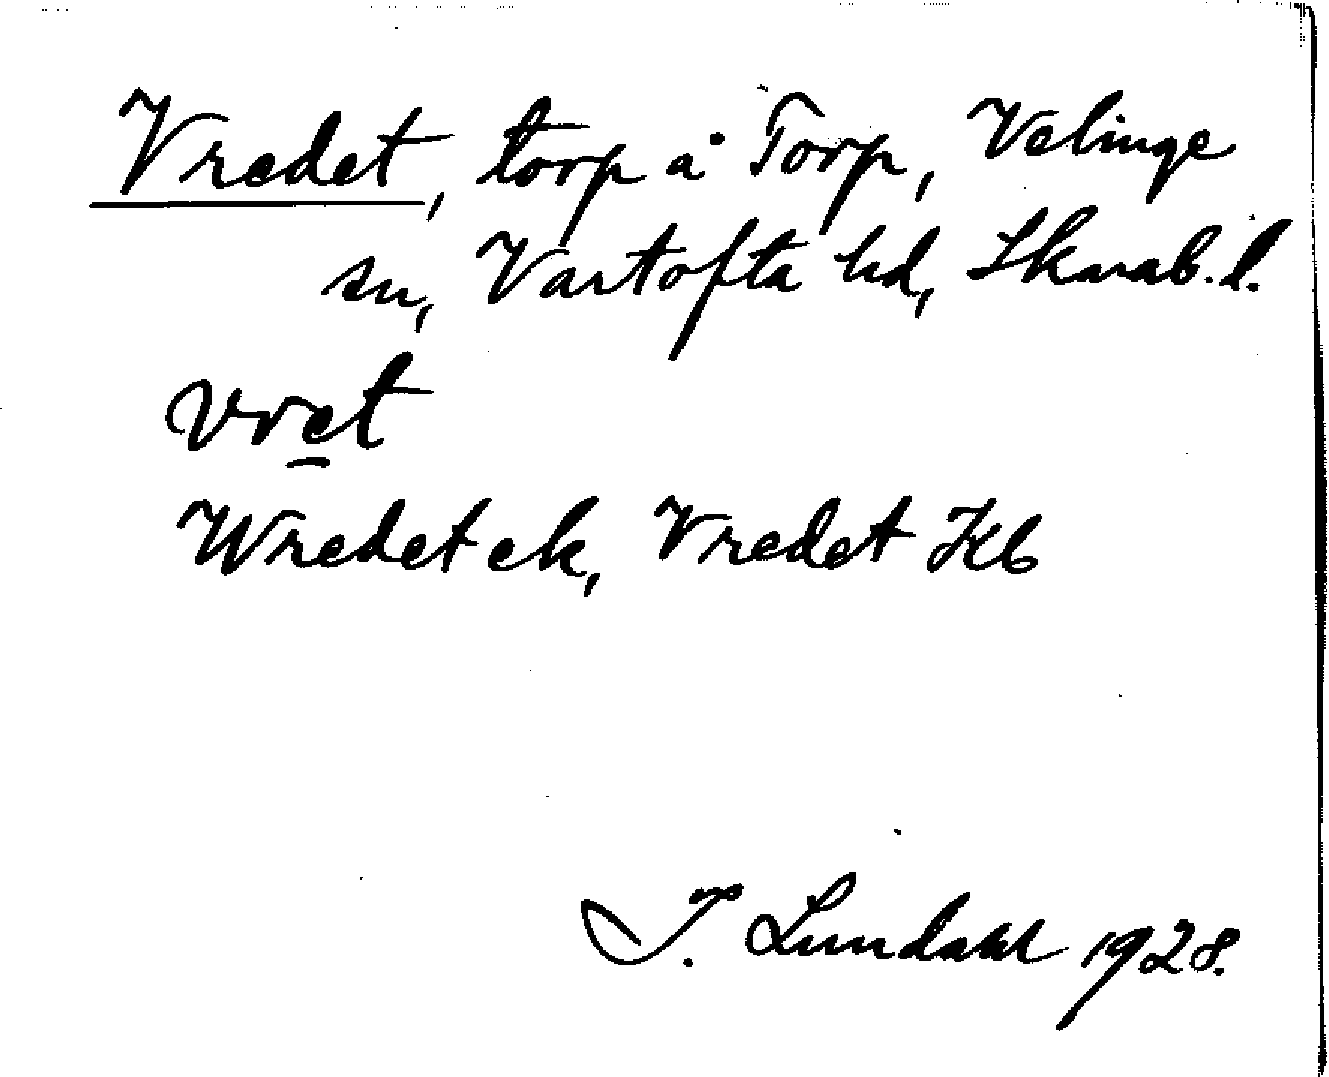 Vredet, torp å Torp, Velinge
sn, Vartofta hd, Skarab. l.
vret
Wredet ek, Vredet Kb
I. Lundahl 1928.